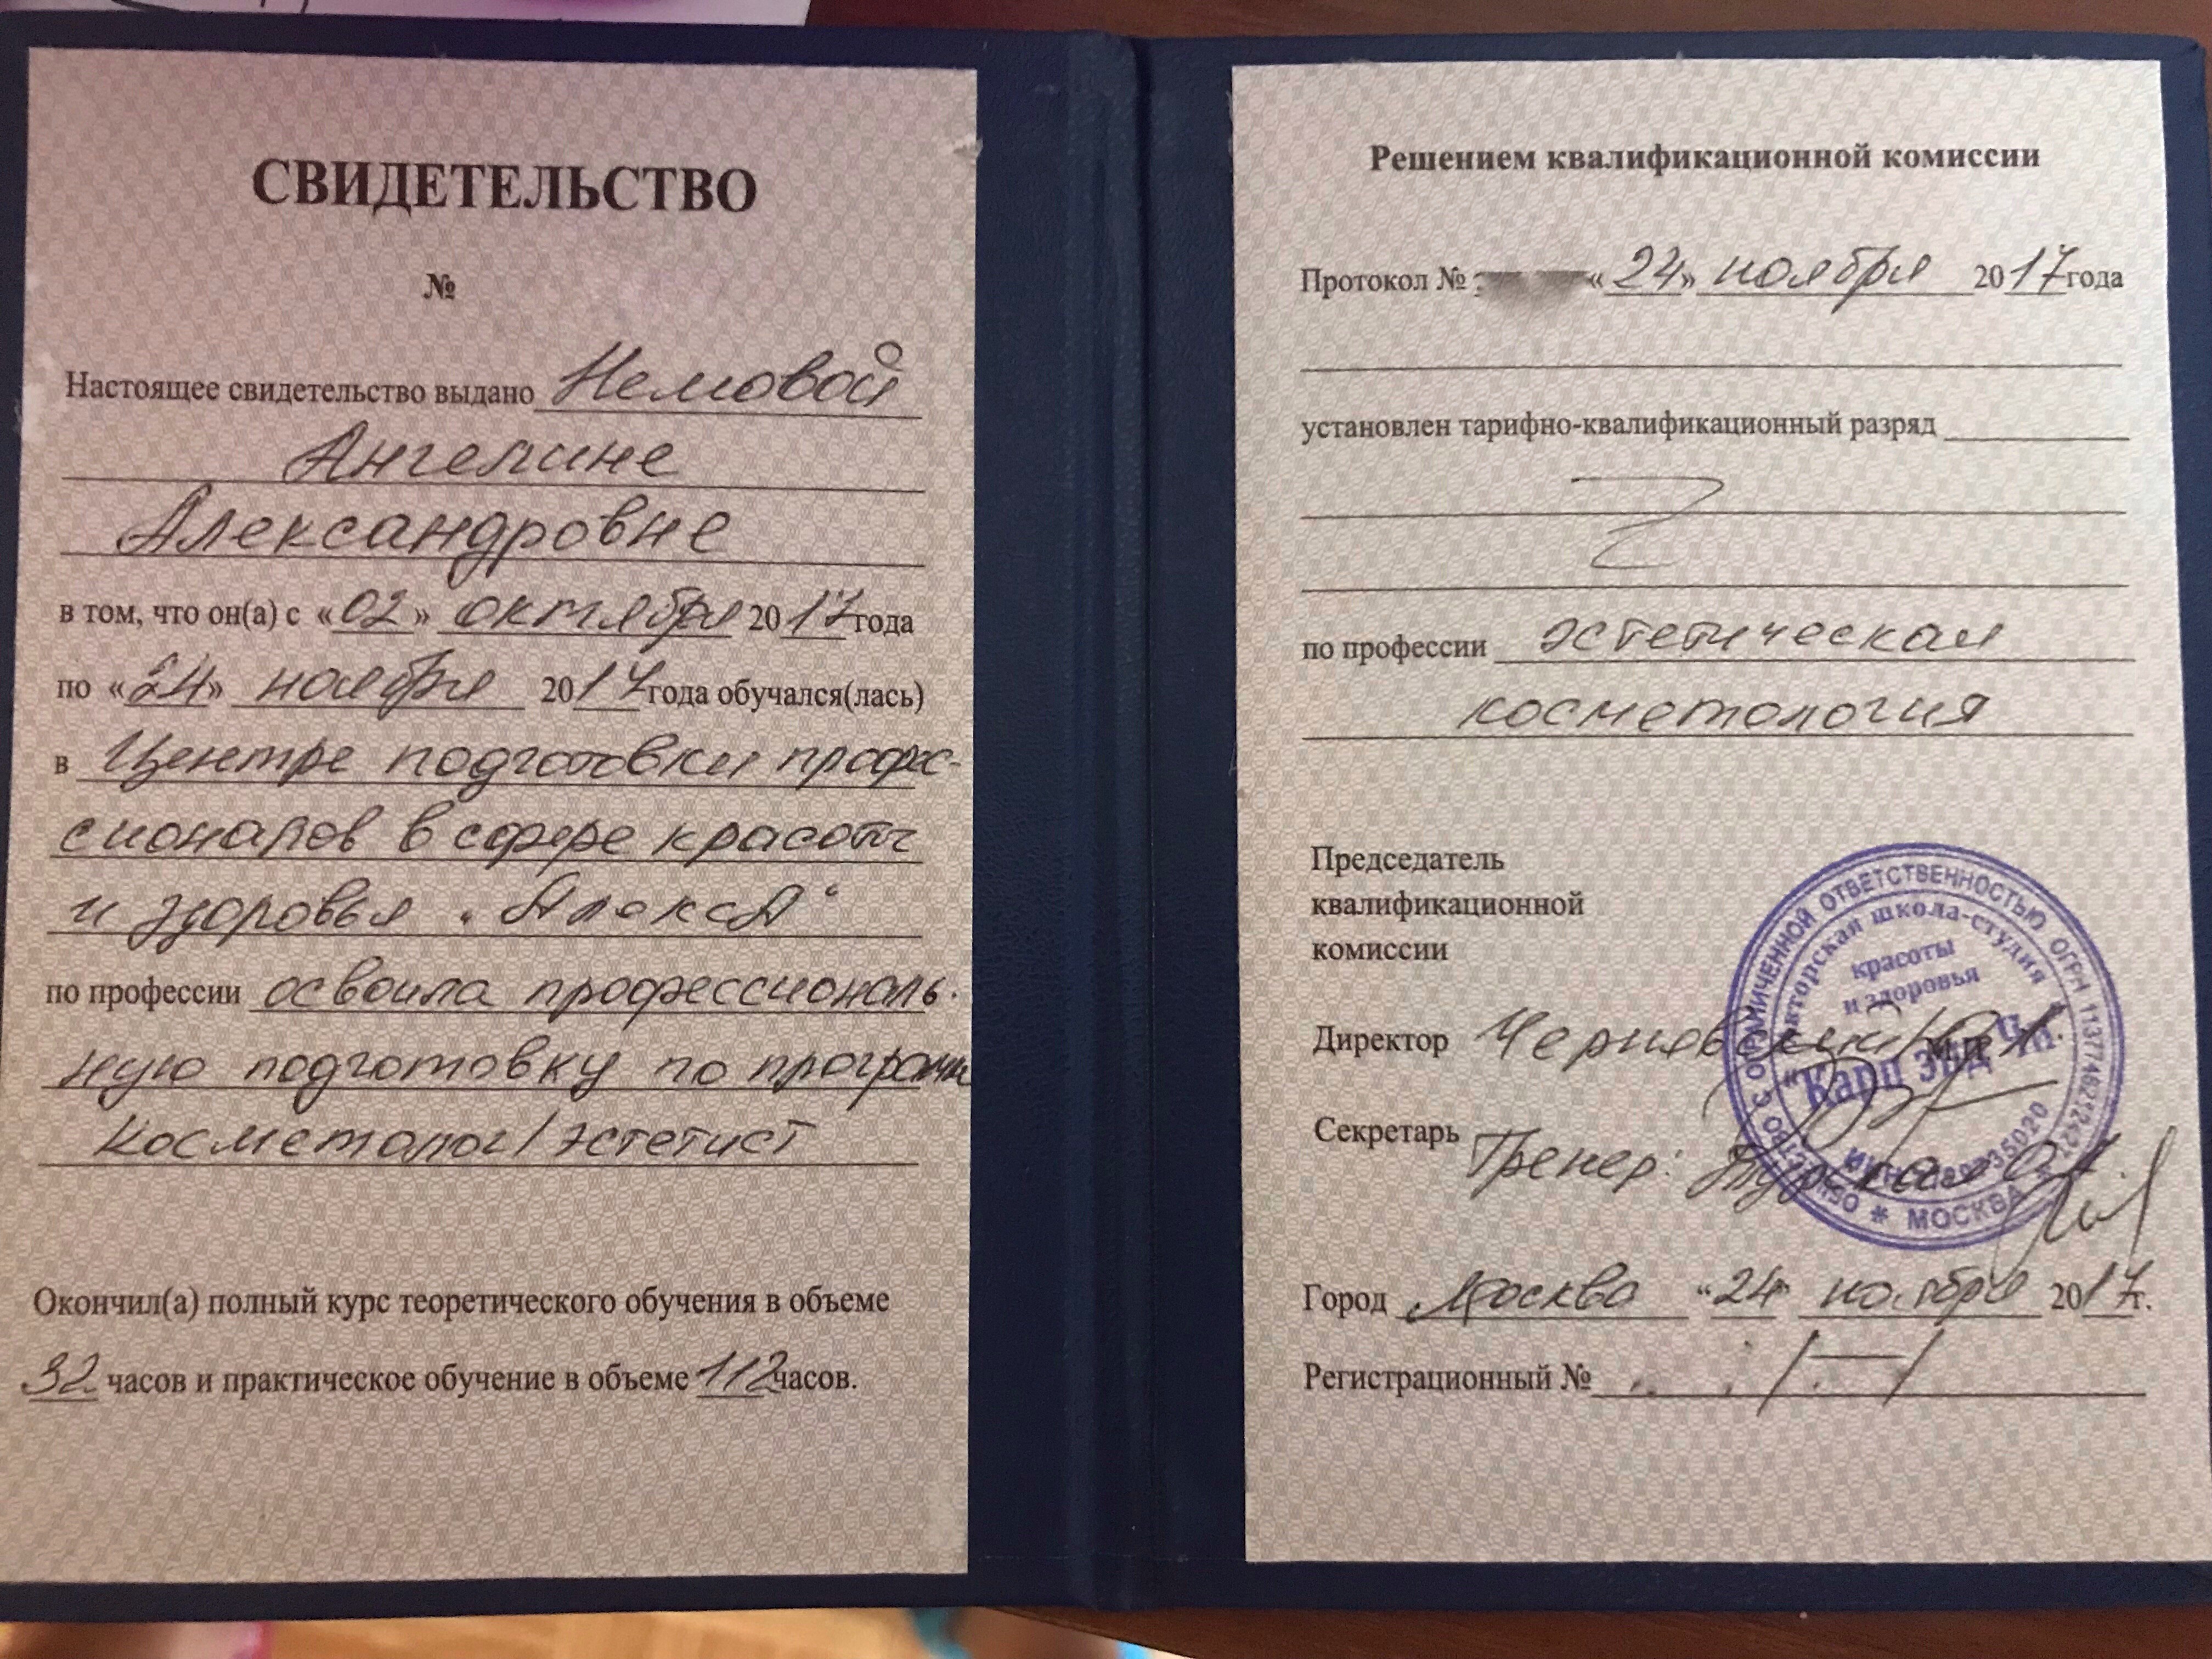 СВИДЕТЕЛЬСТВО
№
Настоящее свидетельство выдано Немовой
Ангелине
Александровне
в том, что он(а) с «02» октября 2017 года
по «24» ноября 2017 года обучался(лась)
в Центре подготовки профес-
сионалов в сфере красоты
и здоровья "АлексА"
по профессии освоила профессиональ-
ную подготовку по программе
косметолог/эстетист
Окончил(а) полный курс теоретического обучения в объеме
32 часов и практическое обучение в объеме 112 часов.
Решением квалификационной комиссии
Протокол № «24» ноября 2017 года
установлен тарифно-квалификационный разряд
по профессии эстетическая
косметология
Председатель
квалификационной
комиссии
Директор
Секретарь Тренер:
Город Москва "24" ноября 2017г.
Регистрационный №
С ОГРАНИЧЕННОЙ ОТВЕТСТВЕННОСТЬЮ ОГРН
МОСКВА
школа-студия
красоты
и здоровья
"Карп энд Ч"